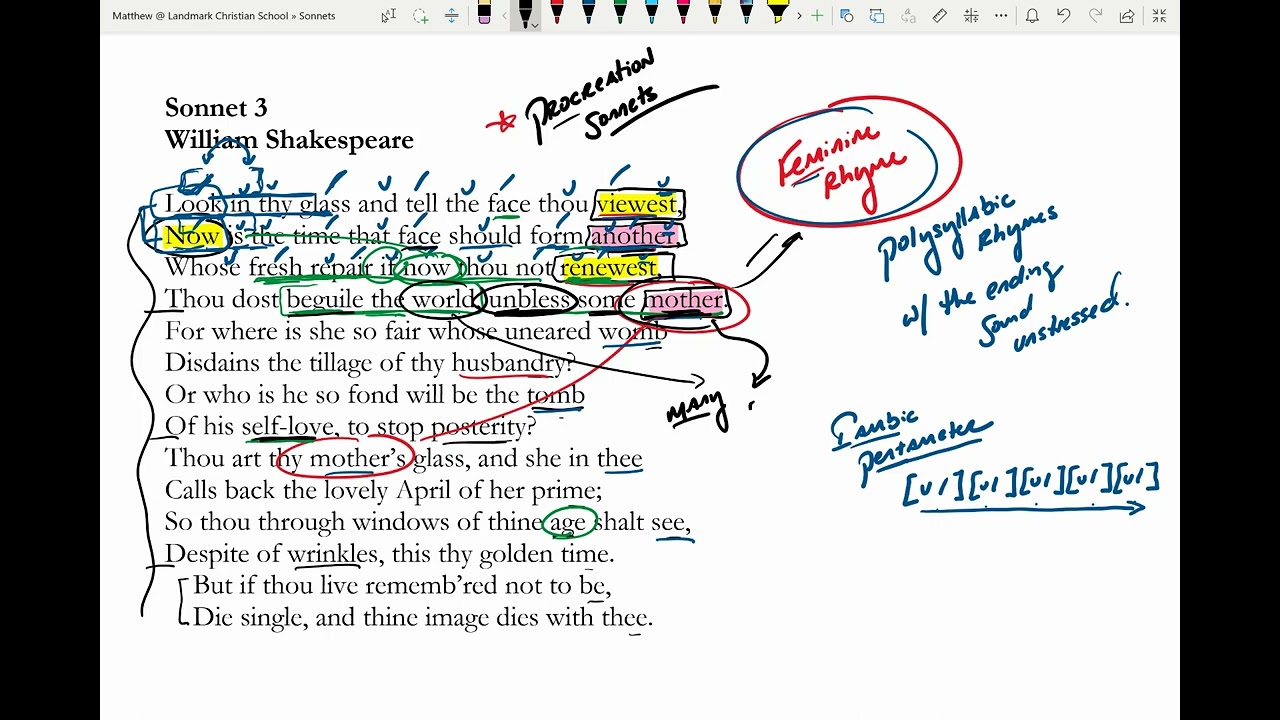 Matthew @ Landmark Christian School » Sonnets
* PROCREATION
Sonnets
Sonnet 3
William Shakespeare
Look in thy glass and tell the face thou viewest,
Now is the time that face should form another,
Whose fresh repair if now thou not renewest,
Thou dost beguile the world, unbless some mother.
For where is she so fair whose uneared womb
Disdains the tillage of thy husbandry?
Or who is he so fond will be the tomb
Of his self-love, to stop posterity?
Thou art thy mother's glass, and she in thee
Calls back the lovely April of her prime;
So thou through windows of thine age shalt see,
Despite of wrinkles, this thy golden time.
But if thou live rememb'red not to be,
Die single, and thine image dies with thee.
Feminine
Rhyme
polysyllabic
Rhymes
w/ the ending
sound
unstressed.
MARY
Iambic
pentameter
[u/][u/][u/][u/][u/]